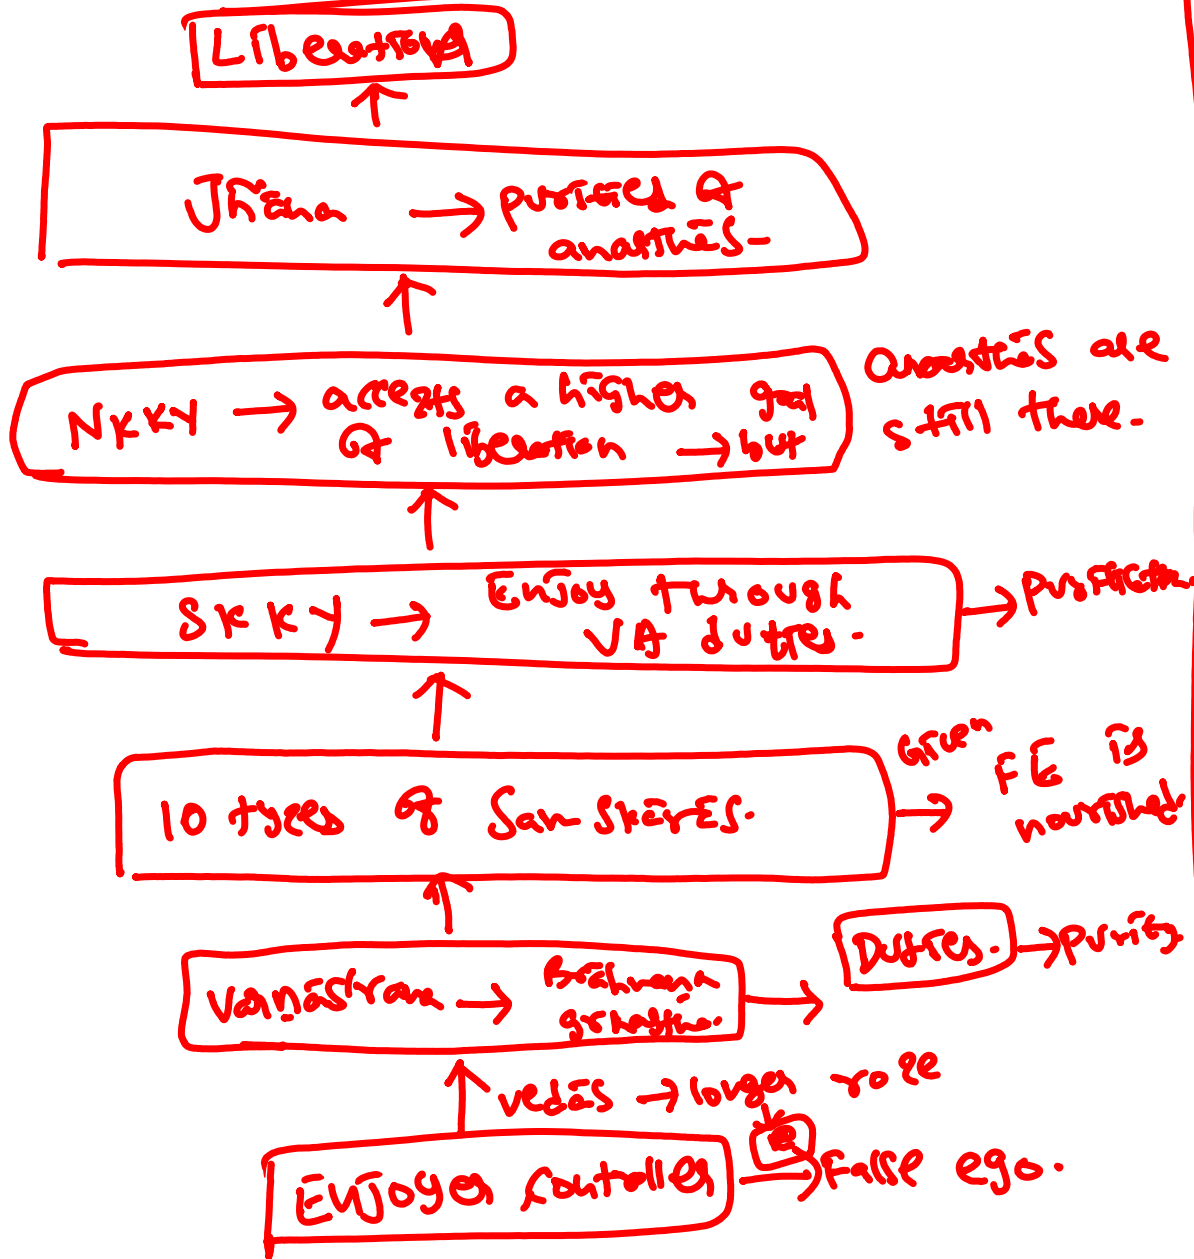 Liberation
Jñāna → purified of
anarthās-
NKKY → accepts a higher goal
of liberation → but
Anarthās are
still there.
SKKY → Enjoy through
VA duties.
→ Purification
10 types of Samskārās.
Given
→ FE is
nourished.
Varṇāśrama → Brāhmana
gṛhastha.
→ Duties. → purity
vedās → longer rope
Enjoyer controller → False ego.